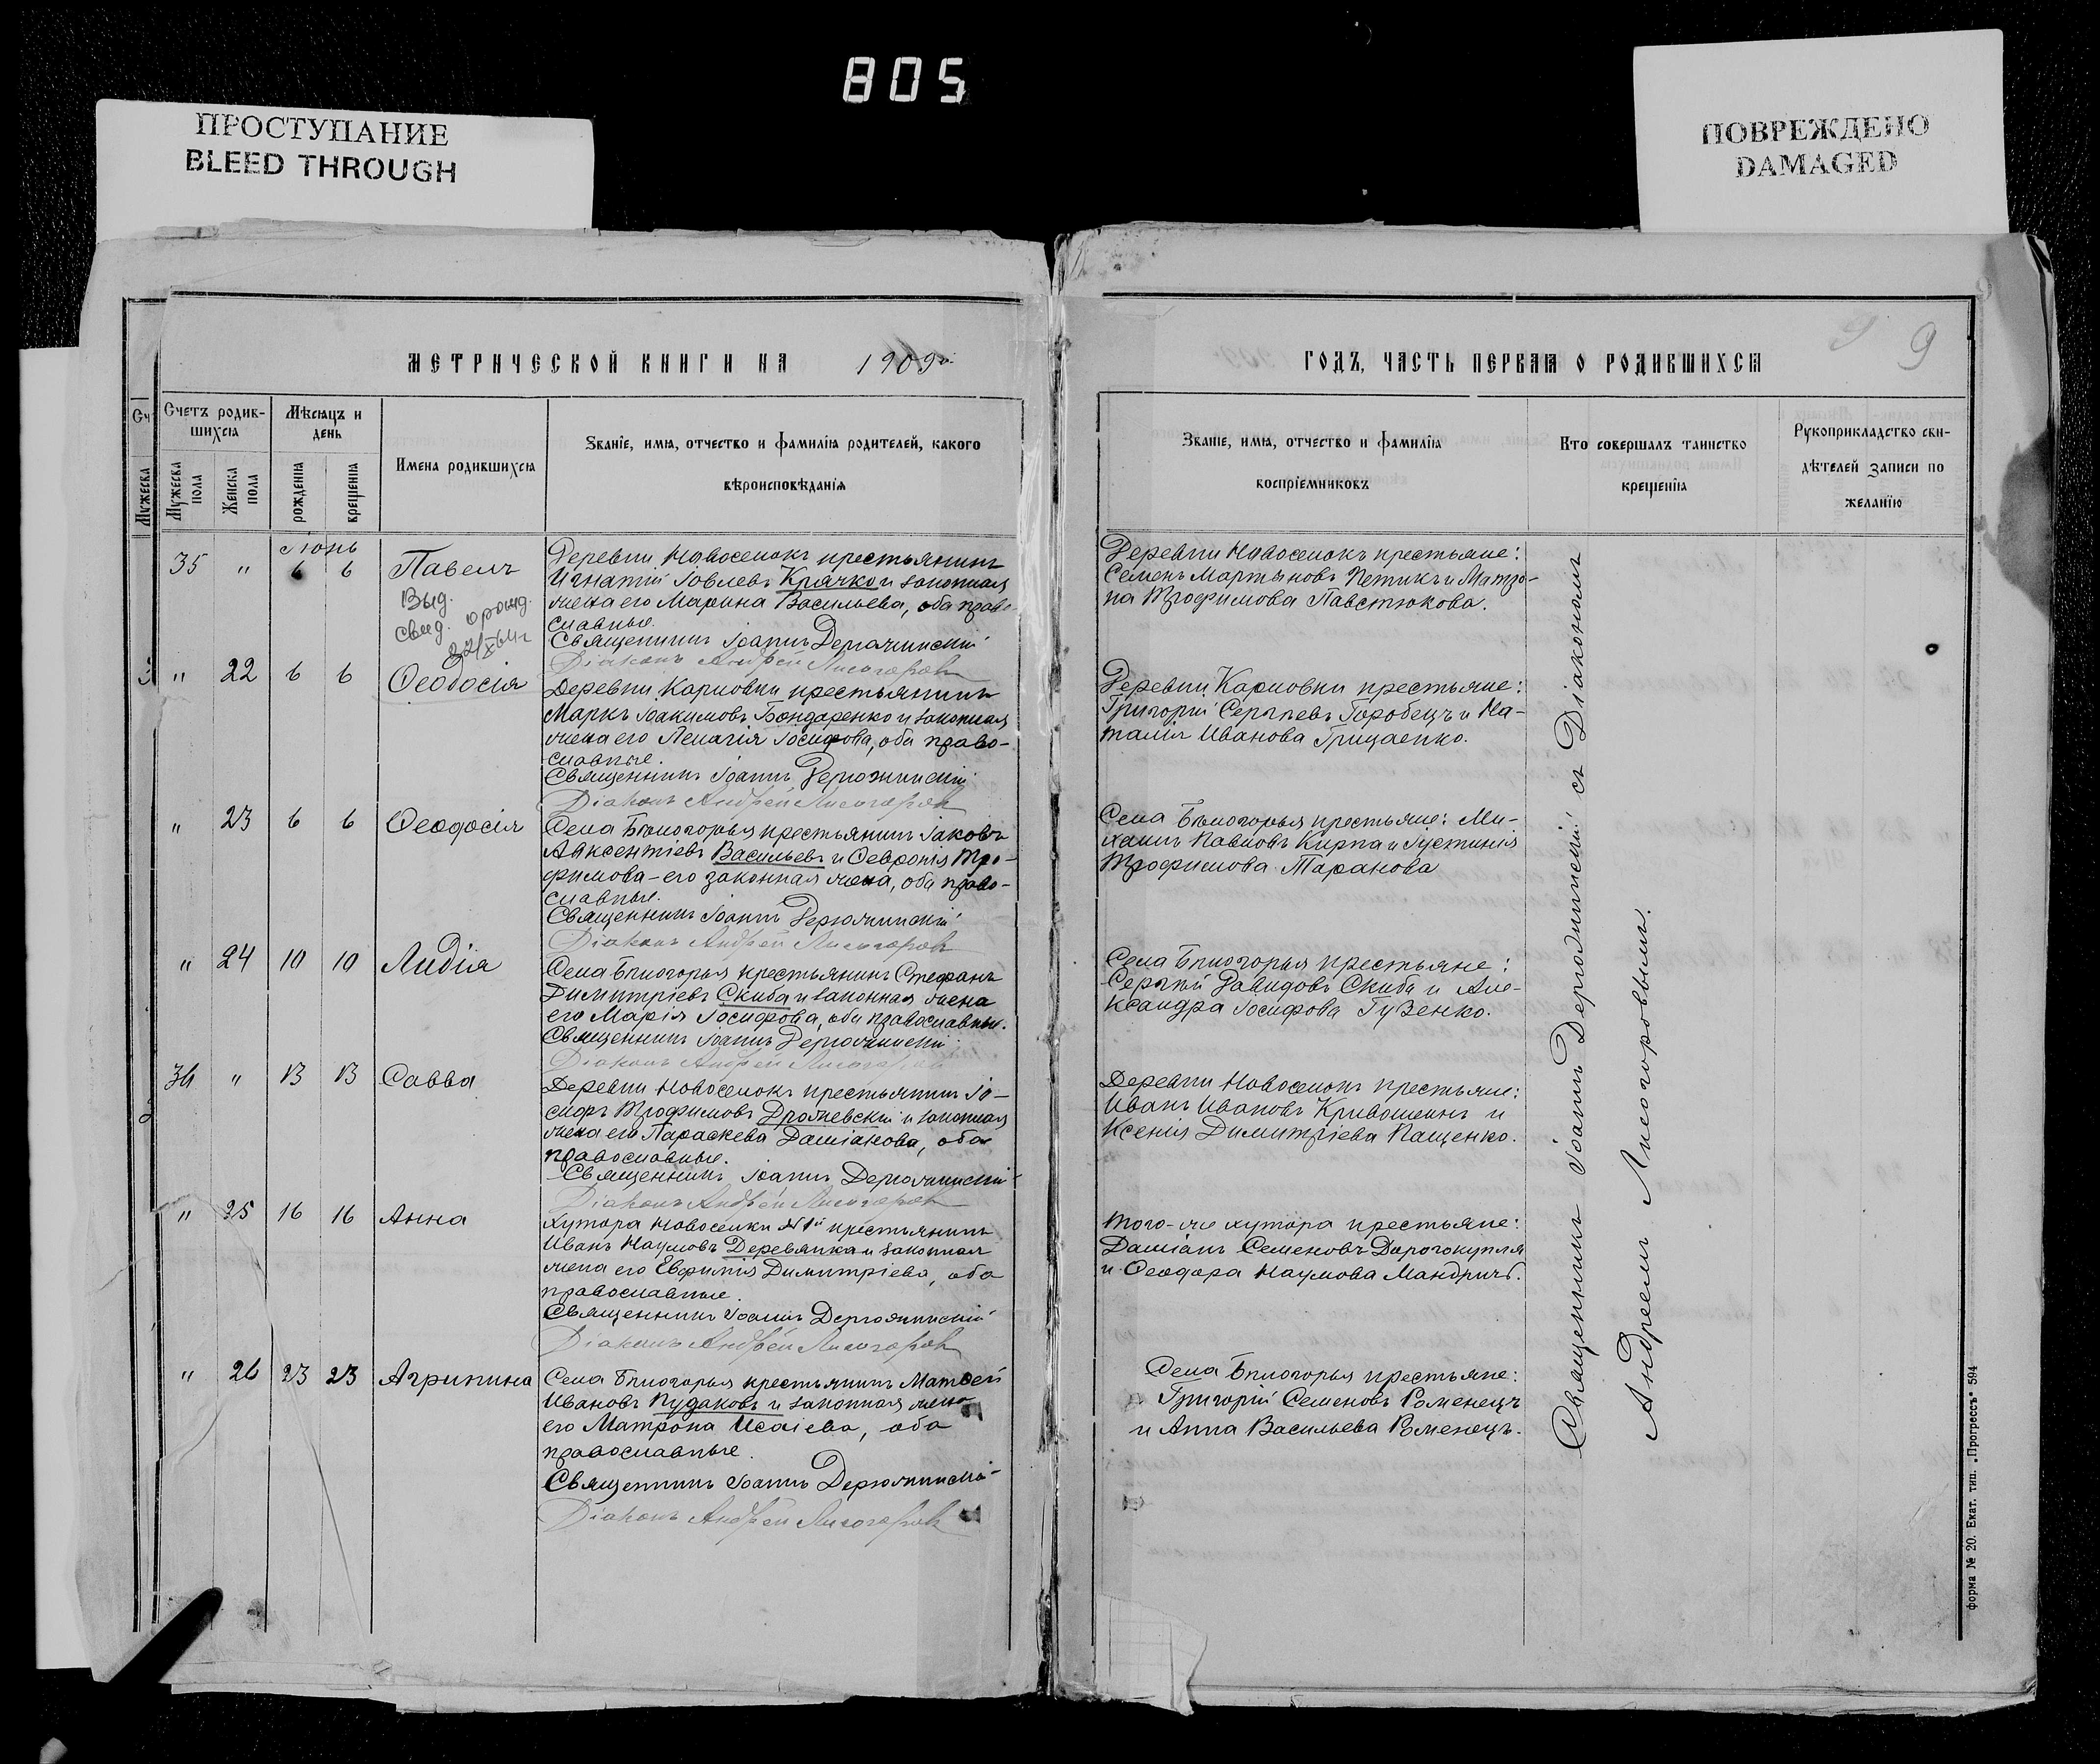 805
ПРОСТУПАНИЕ
BLEED THROUGH
ПОВРЕЖДЕНО
DAMAGED
МЕТРИЧЕСКОЙ КНИГИ НА 1909й
Сч
Мужеска
Счетъ родив-
шихся
Мужеска
пола
Женска
пола
Мѣсяцъ и
день
рожденія
крещенія
Имена родившихся
Званіе, имя, отчество и фамилія родителей, какого
вѣроисповѣданія
Іюнь
35 " 6 6 Павелъ
Выд.
свид. о рожд.
Деревни Новоселокъ крестьянинъ
Игнатій Іовлевъ Крячко и законная
жена его Марина Васильева, оба право
славные.
Священникъ Іоаннъ Дерюжинскій
Діаконъ Андрей Лисогоровъ
" 22 6 6 Ѳеодосія
Деревни Карповки крестьянинъ
Маркъ Іоакимовъ Бондаренко и законная
жена его Пелагія Іосифова, оба право-
славные.
Священникъ Іоаннъ Дерюжинскій
Діаконъ Андрей Лисогоровъ
" 23 6 6 Ѳеодосія
Села Бѣлогорья крестьянинъ Іаковъ
Авксентіевъ Васильевъ и Ѳевронія Тро-
фимова - его законная жена, оба право-
славные.
Священникъ Іоаннъ Дерюжинскій
Діаконъ Андрей Лисогоровъ
" 24 10 10 Лидія
Села Бѣлогорья крестьянинъ Стефанъ
Димитріевъ Скиба и законная жена
его Марія Іосифова, оба православные.
Священникъ Іоаннъ Дерюжинскій
Діаконъ Андрей Лисогоровъ
36 " 13 13 Савва
Деревни Новоселокъ крестьянинъ Іо-
сифъ Трофимовъ Дрожевскій и законная
жена его Параскева Даміанова, оба
православные.
Священникъ Іоаннъ Дерюжинскій
Діаконъ Андрей Лисогоровъ
" 25 16 16 Анна
Хутора Новоселки №1й крестьянинъ
Иванъ Наумовъ Деревянка и законная
жена его Евфимія Димитріева, оба
православные.
Священникъ Іоаннъ Дерюжинскій
Діаконъ Андрей Лисогоровъ
" 26 23 23 Агрипина
Села Бѣлогорья крестьянинъ Матѳей
Ивановъ Пудаковъ и законная жена
его Матрона Исаіева, оба
православные.
Священникъ Іоаннъ Дерюжинскій
Діаконъ Андрей Лисогоровъ
9
ГОДЪ, ЧАСТЬ ПЕРВАЯ О РОДИВШИХСЯ
Званіе, имя, отчество и фамилія
воспріемниковъ
Кто совершалъ таинство
крещенія
Рукоприкладство сви-
дѣтелей записи по
желанію
Деревни Новоселокъ крестьяне:
Семенъ Мартыновъ Петикъ и Матро-
на Трофимова Павстюкова.
Деревни Карповки крестьяне:
Григорій Сергѣевъ Горобецъ и На-
талія Иванова Грицаенко.
Села Бѣлогорья крестьяне: Ми-
хаилъ Павловъ Кирпа и Іустинія
Трофимова Таранова
Села Бѣлогорья крестьяне:
Сергѣй Давидовъ Скиба и Але-
ксандра Іосифова Гузенко.
Деревни Новоселокъ крестьяне:
Иванъ Ивановъ Кривошеинъ и
Ксенія Димитріева Пащенко.
Того-же хутора крестьяне:
Даміанъ Семеновъ Дорогокупля
и Ѳеодора Наумова Мандричъ.
Села Бѣлогорья крестьяне:
Григорій Семеновъ Роменецъ
и Анна Васильева Роменецъ.
Священникъ Іоаннъ Дерюжинскій съ Діакономъ
Андреемъ Лисогоровымъ.
форма № 20. Екат. тип. „Прогрессъ" 594